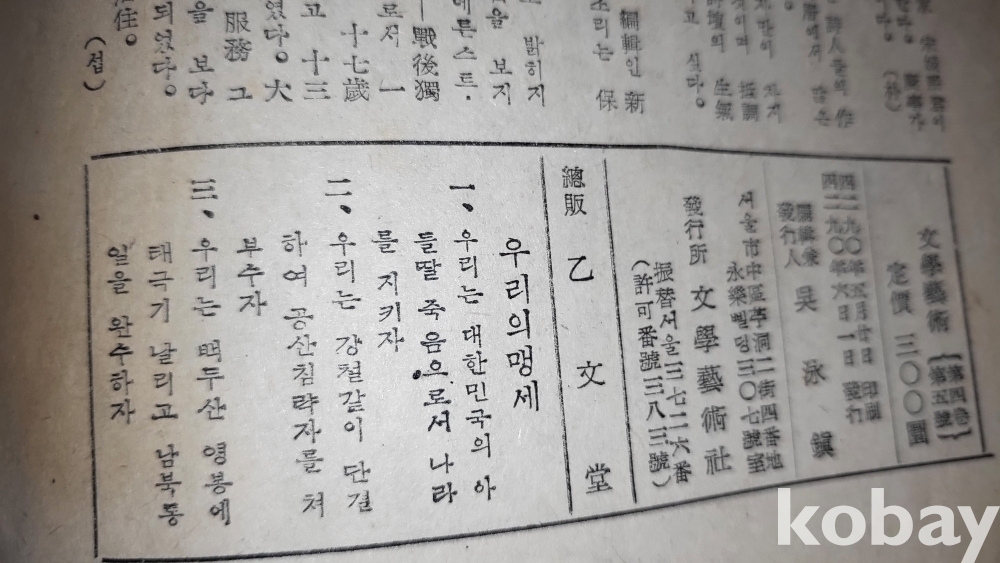 家 宋稶
(朴)
詩人들의 作
같은
차지
것이며 振調
詩壇의 生氣
고 싶다。
編輯인 新
조리는 保
밝히지
을 보지
에든스트·
—戰後獨
로서 一
十七歲
고 十三
였다。大
服務 그
을 보다
되였다。
住。
(섭)
文學藝術 〔第四卷 第五號〕
定價 三〇〇圜
四二九〇年五月廿日 印刷
四二九〇年六月一日 發行
編輯兼
發行人 吳泳鎭
서울市中區苧洞二街四番地
永樂삘딩三〇七號室
發行所 文學藝術社
振替서울三七二六番
(許可番號三八三號)
總販 乙文堂
우리의맹세
一、우리는 대한민국의 아
들딸 죽음으로서 나라
를 지키자
二、우리는 강철같이 단결
하여 공산침략자를 쳐
부수자
三、우리는 백두산 영봉에
태극기 날리고 남북통
일을 완수하자
kobay